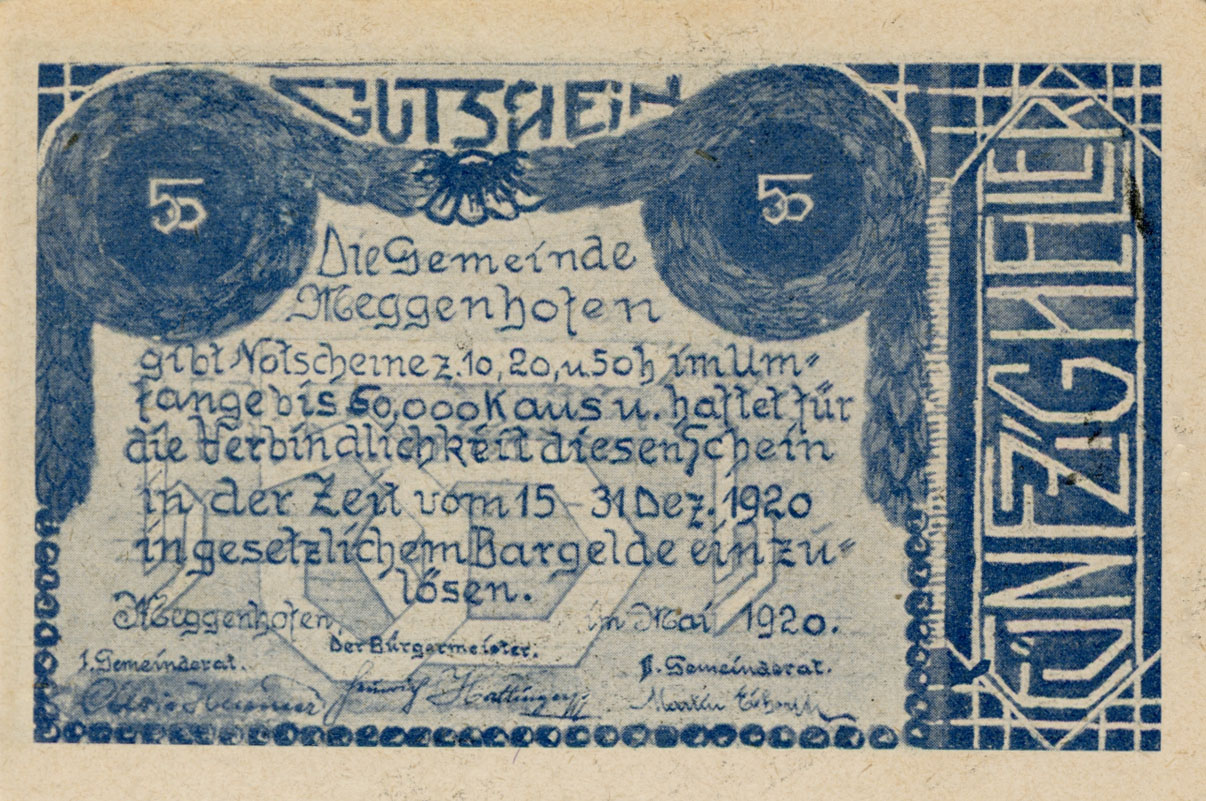 GUTSCHEIN
50
50
Die Gemeinde
Meggenhofen
gibt Notscheine z. 10, 20, u. 50 h im Um=
fange bis 60,000 K aus u. haftet für
die Verbindlichkeit diesen Schein
in der Zeit vom 15 - 31 Dez. 1920
in gesetzlichem Bargelde einzu=
lösen.
Meggenhofen im Mai 1920.
Der Bürgermeister:
I. Gemeinderat. II. Gemeinderat.
Heinrich Hattinger
Martin
FÜNFZIG HELLER